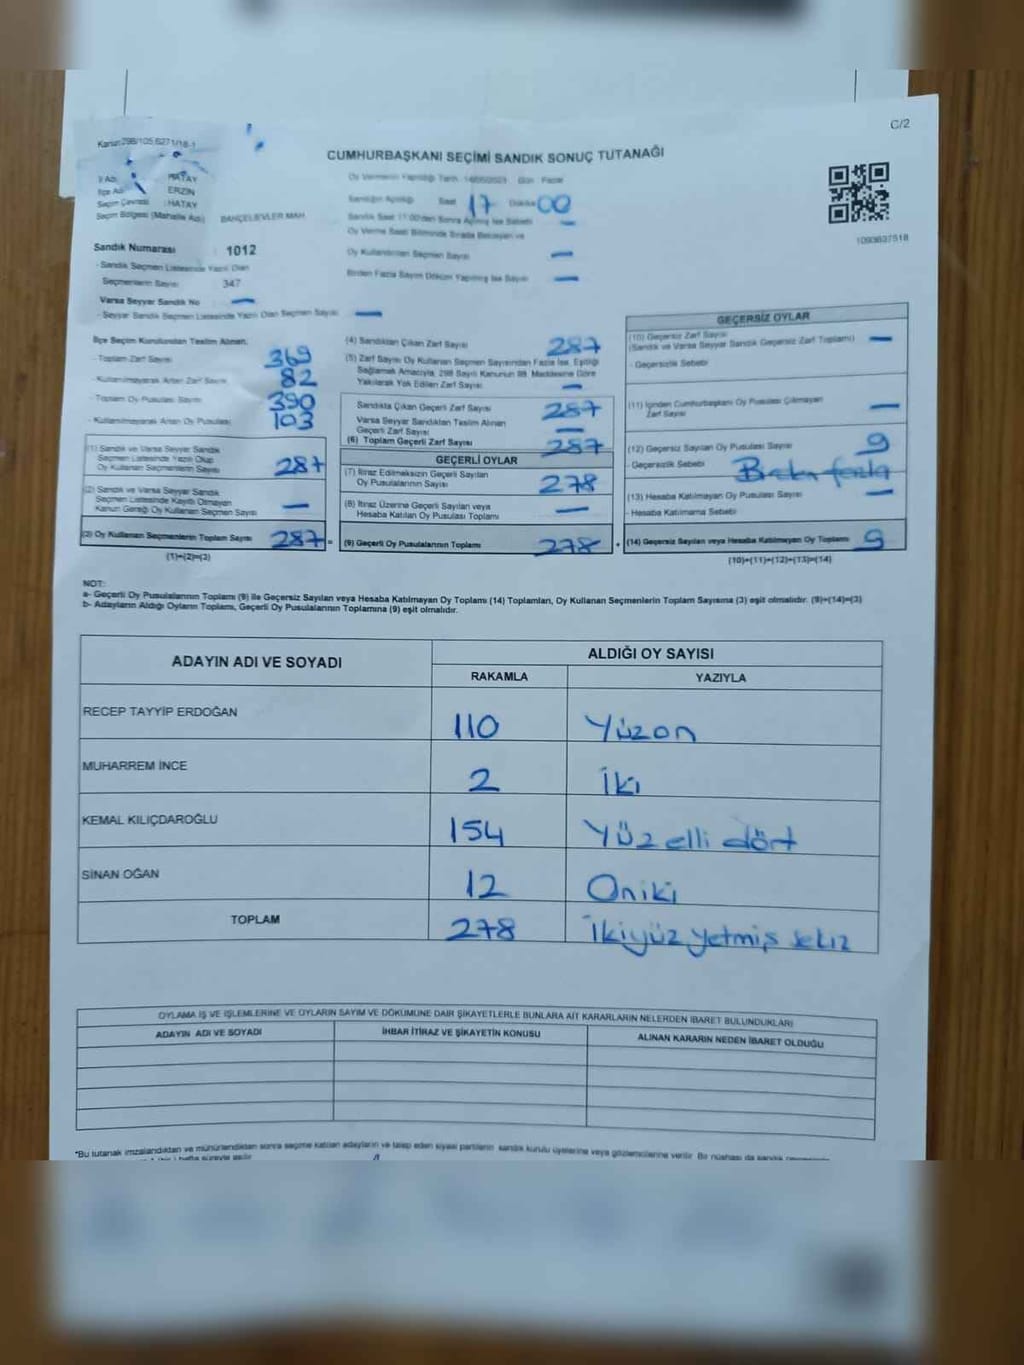 C/2
Kanun:298/105,6271/18-1
CUMHURBAŞKANI SEÇİMİ SANDIK SONUÇ TUTANAĞI
İl Adı : HATAY
İlçe Adı : ERZİN
Seçim Çevresi : HATAY
Seçim Bölgesi (Mahalle Adı) : BAHÇELİEVLER MAH.
Sandık Numarası : 1012
- Sandık Seçmen Listesinde Yazılı Olan
Seçmenlerin Sayısı 347
Varsa Seyyar Sandık No —
- Seyyar Sandık Seçmen Listesinde Yazılı Olan Seçmen Sayısı —
Oy Vermenin Yapıldığı Tarih: 14/05/2023 Gün : Pazar
Sandığın Açıldığı Saat 17 Dakika 00
Sandık Saat 17:00'den Sonra Açılmış İse Sebebi —
Oy Verme Saati Bitiminde Sırada Bekleyen ve
Oy Kullandırılan Seçmen Sayısı —
Birden Fazla Sayım Döküm Yapılmış İse Sayısı —
1093637518
İlçe Seçim Kurulundan Teslim Alınan;
- Toplam Zarf Sayısı 369
- Kullanılmayarak Artan Zarf Sayısı 82
- Toplam Oy Pusulası Sayısı 390
- Kullanılmayarak Artan Oy Pusulası 103
(1) Sandık ve Varsa Seyyar Sandık
Seçmen Listesinde Yazılı Olup
Oy Kullanan Seçmenlerin Sayısı 287
(2) Sandık ve Varsa Seyyar Sandık
Seçmen Listesinde Kayıtlı Olmayan
Kanun Gereği Oy Kullanan Seçmen Sayısı —
(3) Oy Kullanan Seçmenlerin Toplam Sayısı 287 =
(1)+(2)=(3)
(4) Sandıktan Çıkan Zarf Sayısı 287
(5) Zarf Sayısı Oy Kullanan Seçmen Sayısından Fazla İse, Eşitliği
Sağlamak Amacıyla, 298 Sayılı Kanunun 98. Maddesine Göre
Yakılarak Yok Edilen Zarf Sayısı —
Sandıkta Çıkan Geçerli Zarf Sayısı 287
Varsa Seyyar Sandıktan Teslim Alınan
Geçerli Zarf Sayısı —
(6) Toplam Geçerli Zarf Sayısı 287
GEÇERLİ OYLAR
(7) İtiraz Edilmeksizin Geçerli Sayılan
Oy Pusulalarının Sayısı 278
(8) İtiraz Üzerine Geçerli Sayılan veya
Hesaba Katılan Oy Pusulası Toplamı —
(9) Geçerli Oy Pusulalarının Toplamı 278 +
GEÇERSİZ OYLAR
(10) Geçersiz Zarf Sayısı
(Sandık ve Varsa Seyyar Sandık Geçersiz Zarf Toplamı) —
- Geçersizlik Sebebi
(11) İçinden Cumhurbaşkanı Oy Pusulası Çıkmayan
Zarf Sayısı —
(12) Geçersiz Sayılan Oy Pusulası Sayısı 9
- Geçersizlik Sebebi fazla
(13) Hesaba Katılmayan Oy Pusulası Sayısı —
- Hesaba Katılmama Sebebi
(14) Geçersiz Sayılan veya Hesaba Katılmayan Oy Toplamı 9
(10)+(11)+(12)+(13)=(14)
NOT:
a- Geçerli Oy Pusulalarının Toplamı (9) ile Geçersiz Sayılan veya Hesaba Katılmayan Oy Toplamı (14) Toplamları, Oy Kullanan Seçmenlerin Toplam Sayısına (3) eşit olmalıdır. (9)+(14)=(3)
b- Adayların Aldığı Oyların Toplamı, Geçerli Oy Pusulalarının Toplamına (9) eşit olmalıdır.
ADAYIN ADI VE SOYADI
ALDIĞI OY SAYISI
RAKAMLA YAZIYLA
RECEP TAYYİP ERDOĞAN 110 Yüzon
MUHARREM İNCE 2 İki
KEMAL KILIÇDAROĞLU 154 Yüz elli dört
SİNAN OĞAN 12 Oniki
TOPLAM 278 İkiyüz yetmiş sekiz
OYLAMA İŞ VE İŞLEMLERİNE VE OYLARIN SAYIM VE DÖKÜMÜNE DAİR ŞİKAYETLERLE BUNLARA AİT KARARLARIN NELERDEN İBARET BULUNDUKLARI
ADAYIN ADI VE SOYADI İHBAR İTİRAZ VE ŞİKAYETİN KONUSU ALINAN KARARIN NEDEN İBARET OLDUĞU
*Bu tutanak imzalandıktan ve mühürlendikten sonra seçime katılan adayların ve talep eden siyasi partilerin sandık kurulu üyelerine veya gözlemcilerine verilir. Bir nüshası da sandık